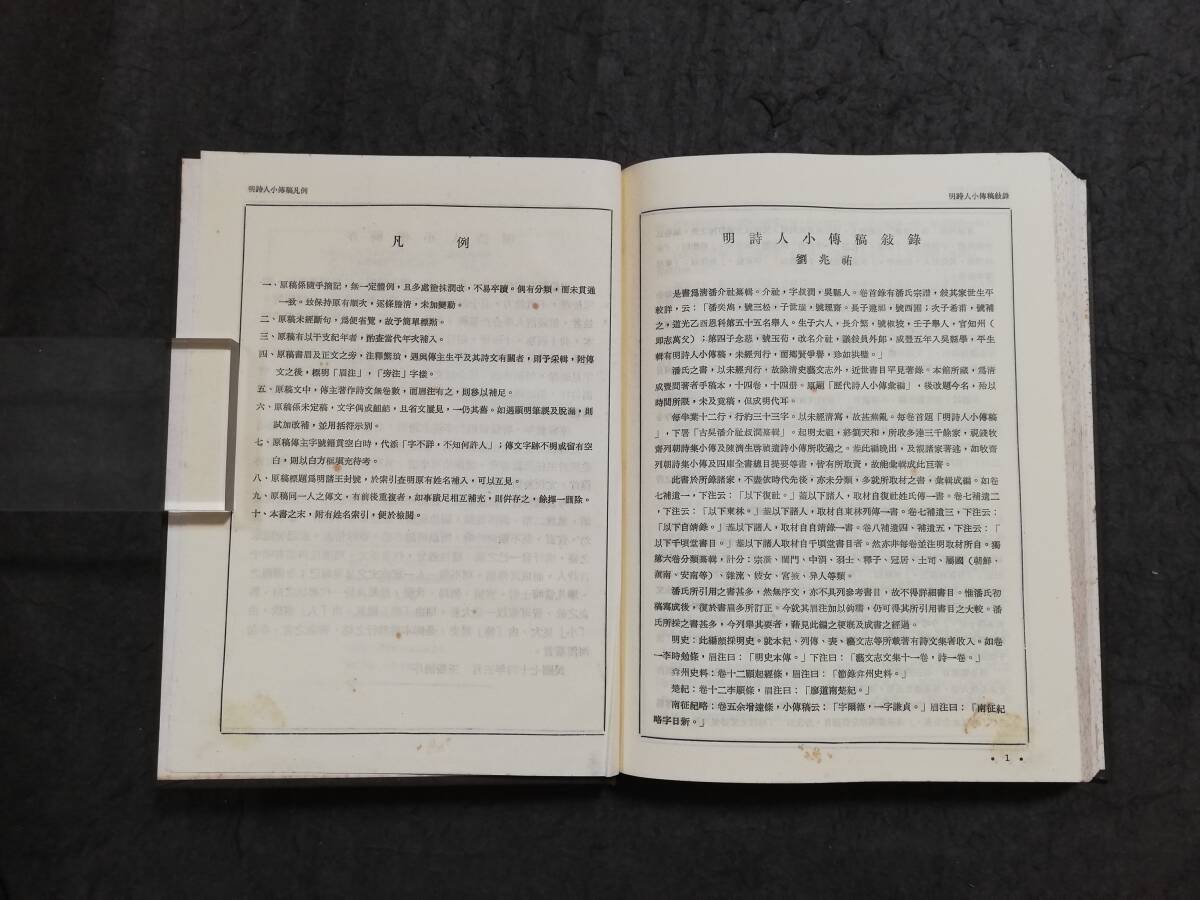 明詩人小傳稿凡例
凡例
一、原稿係隨手摘記，無一定體例，且多處塗抹潤改，不易卒讀。偶有分類，而未貫通
一致。玆保持原有順次，逐條謄清，未加變動。
二、原稿未經斷句，爲便省覽，故予簡單標點。
三、原稿有以干支紀年者，酌查當代年次補入。
四、原稿書眉及正文之旁，注釋繁瑣，遇與傳主生平及其詩文有關者，則予采輯，附傳
文之後，標明「眉注」，「旁注」字樣。
五、原稿文中，傳主著作詩文無卷數，而眉注有之，則移以補足。
六、原稿係未定稿，文字偶或齟齬，且省文屢見，一仍其舊。如遇顯明筆誤及脫漏，則
試加改補，並用括符示別。
七、原稿傳主字號籍貫空白時，代添「字不詳，不知何許人」；傳文字跡不明或留有空
白，則以白方框填充待考。
八、原稿標題爲明諸王封號，於索引查明原有姓名補入，可以互見。
九、原稿同一人之傳文，有前後重複者，如事蹟足相互補充，則併存之，餘擇一刪除。
十、本書之末，附有姓名索引，便於檢閱。
明詩人小傳稿敍錄
明詩人小傳稿敍錄
劉兆祐
是書爲清潘介祉纂輯。介祉，字叔潤，吳縣人。卷首錄有潘氏宗譜，敍其家世生平
較詳，云：「潘奕雋，號三松，子世璜，號理齋。長子遵祁，號西圃；次子希甫，號補
之，道光乙酉恩科第五十五名舉人。生子六人，長介繁，號椒坡，壬子舉人，官知州（
即志萬父）；第四子念慈，號玉荀，改名介祉，議敍員外郎，咸豐五年入吳縣學，平生
輯有明詩人小傳稿，未經刊行，而鄉賢爭譽，珍如拱璧。」
潘氏之書，以未經刊行，故除清史藝文志外，近世書目罕見著錄。本館所藏，爲清
咸豐間著者手稿本，十四卷，十四册。原題「歷代詩人小傳彙編」，後改題今名，殆以
時間所限，未及竟稿，但成明代耳。
每半葉十二行，行約三十三字。以未經清寫，故甚蕪亂。每卷首題「明詩人小傳稿
」，下署「古吳潘介祉叔潤纂輯」。起明太祖，終劉天和，所收多達三千餘家，視錢牧
齋列朝詩集小傳及陳濟生啓禎遺詩小傳所收過之。蓋此編晚出，及覩諸家著述，如牧齋
列朝詩集小傳及四庫全書總目提要等書，皆有所取資，故能彙輯成此巨著。
此書於所錄諸家，不盡依時代先後，亦未分類，多就所取材之書，彙輯成編。如卷
七補遺一，下注云：「以下復社。」蓋以下諸人，取材自復社姓氏傳一書。卷七補遺二
，下注云：「以下東林。」蓋以下諸人，取材自東林列傳一書。卷七補遺三，下注云：
「以下自靖錄。」蓋以下諸人，取材自自靖錄一書。卷八補遺四、補遺五，下注云：「
以下千頃堂書目。」蓋以下諸人取材自千頃堂書目者。然亦非每卷並注明取材所自。獨
第六卷分類纂輯，計分：宗潢、閨門、中涓、羽士、釋子、冠居、土司、屬國（朝鮮、
滇南、安南等）、雜流、妓女、宮掖、异人等類。
潘氏所引用之書甚多，然無序文，亦不具列參考書目，故不得詳細書目。惟潘氏初
稿寫成後，復於書眉多所訂正。今就其眉注加以鈎稽，仍可得其所引用書目之大較。潘
氏所採之書甚多，今列舉其要者，藉見此編之梗槪及成書之經過。
明史：此編頗採明史。就本紀、列傳、表、藝文志等所載著有詩文集者收入。如卷
一李時勉條，眉注曰：「明史本傳。」下注曰：「藝文志文集十一卷，詩一卷。」
弇州史料：卷十二顧起經條，眉注曰：「節錄弇州史料。」
楚紀：卷十二李願條，眉注曰：「廖道南楚紀。」
南征紀略：卷五余增遠條，小傳稿云：「字爾德，一字謙貞。」眉注曰：「南征紀
略字日新。」
• 1 •